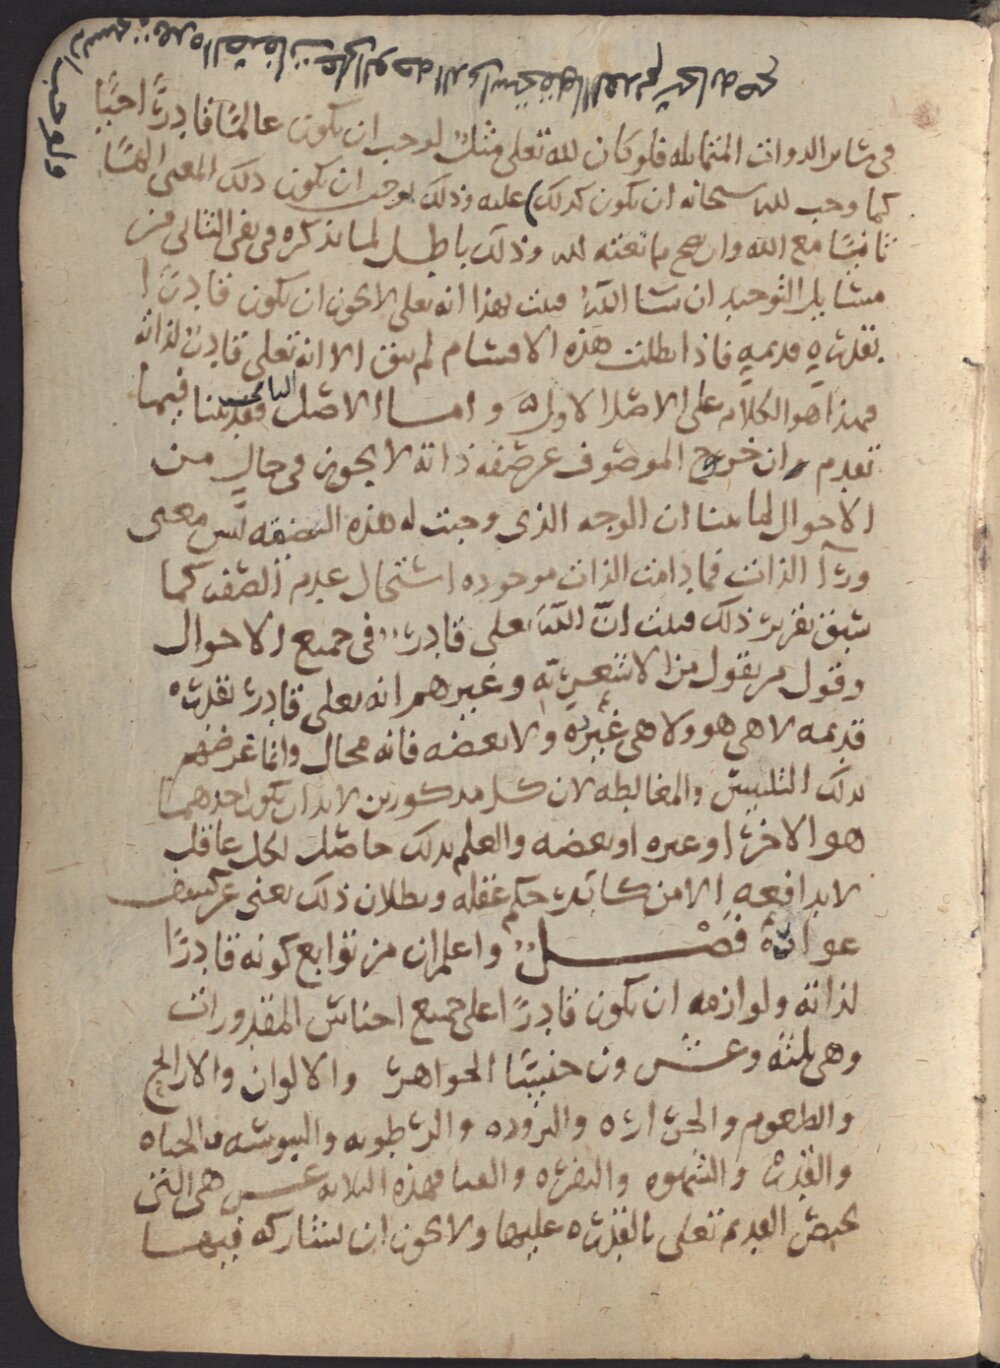 ولو وجب ان يستحق هذه الصفات على الوجه الذي استحقها القديم تعالى صح
في سائر الذوات المتماثله فلو كان لله تعلى مثلٌ لوجب ان يكون عالمًا قادرًا حيًا
كما وجب لله سبحانه ان يكون كذلك عليه وذلك يوجب ان يكون ذلك المعنى الهًا
ثانيًا مع الله وان صح ما تعته لله وذلك باطل لما نذكره في نفي الثاني من
مسايل التوحيد ان شا الله فثبت بهذا انه تعلى لا يجوز ان يكون قادرًا
بقدرةٍ قديمهٍ فاذا بطلت هذه الاقسام لم يبق الا انه تعلى قادرٌ لذاته
فهذا هو الكلام على الاصل الاول و اما الاصل الثاني فقد بينا فيما
تقدم ان خروج الموصوف عن صفه ذاته لا يجوز في حالٍ من
الاحوال لما بينا ان الوجه الذي وجبت له هذه الصفه ليس معنى
ورآ الذات فما دامت الذات موجوده استحال عدم الصفه كما
سبق تقرير ذلك فثبت انّ اللهَ تعلى قادرٌ في جميع الاحوال
وقول من يقول من الاشعريه وغيرهم انه تعلى قادرٌ بقدره
قديمه لا هي هو ولا هي غيره ولا بعضه فانه محال وانما غرضهم
بذلك التلبيس والمغالطه لان كل مذكورين لا بد ان يكون احدهما
هو الاخر او غيره او بعضه والعلم بذلك حاصل لكل عاقل
لا يدافعه الا من كابر حكم عقله وبطلان ذلك يغني عن كشف
عواره فصل واعلم ان من توابع كونه قادرًا
لذاته ولوازمه ان يكون قادرًا على جميع اجناس المقدورات
وهي ثلثه وعشرون جنسًا الجواهر والالوان والارايح
والطعوم والحراره والبروده والرطوبه واليبوسه والحياه
والقدره والشهوه والنفره والفنا فهذه الثلاثه عشر هي التي
يختص القديم تعلى بالقدره عليها ولا يجوز ان يشاركه فيها